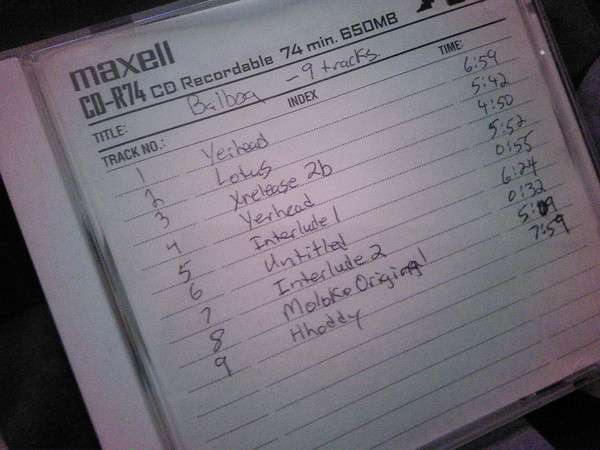 maxell
CD-R74 CD Recordable 74 min. 650MB
TITLE: Balboa - 9 tracks.
TRACK NO.: INDEX TIME:
1 Yerhead 6:59
2 Lotus 5:42
3 Xrelease 2b 4:50
4 Yerhead 5:52
5 Interlude 1 0:55
6 Untitled 6:24
7 Interlude 2 0:32
8 Moloko Original 5:09
9 Hhoddy 7:59